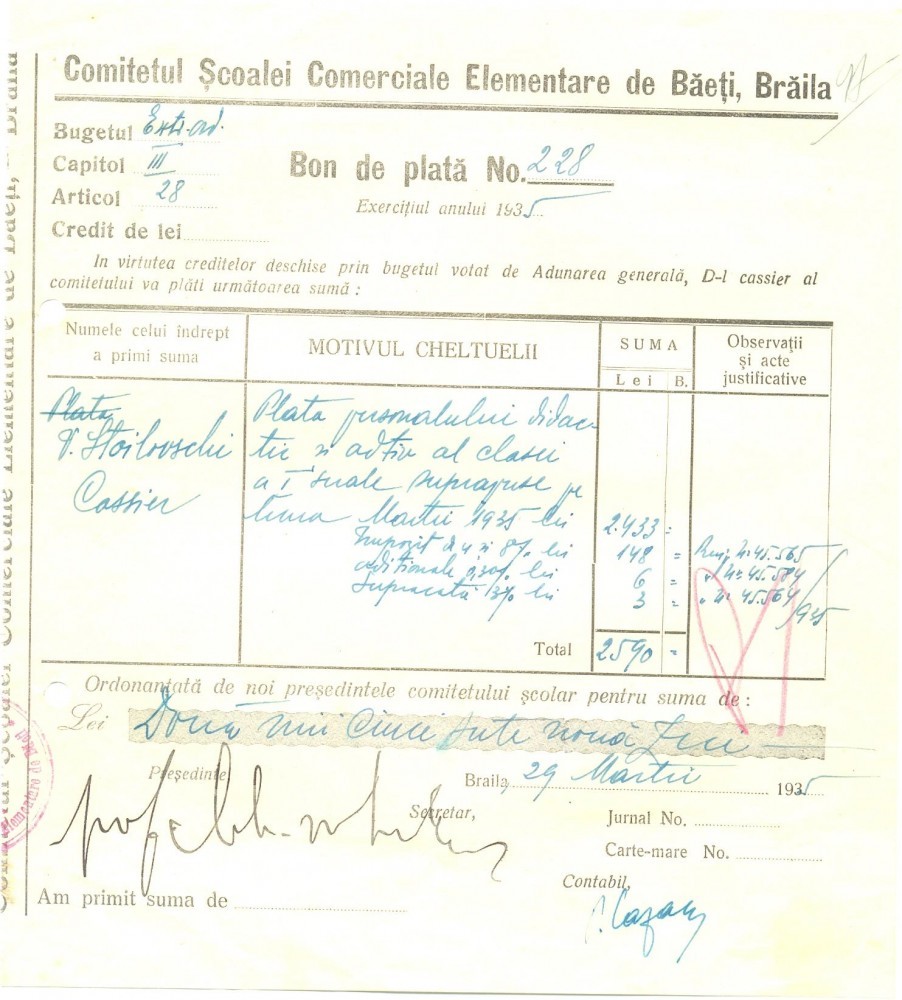 Comitetul Școalei Comerciale Elementare de Băeți, Brăila
Bugetul Extr.ord.
Capitol III
Articol 28
Credit de lei
Bon de plată No. 228
Exercițiul anului 1935
In virtutea creditelor deschise prin bugetul votat de Adunarea generală, D-l cassier al
comitetului va plăti următoarea sumă :
Numele celui îndrept
a primi suma
MOTIVUL CHELTUELII
SUMA
Lei B.
Observații
și acte
justificative
Plata
V. Stoilovschi
Cassier
Plata personalului didac-
tic si adtiv al clasei
a I suale suprapuse pe
luna Martie 1935 lei 2.433 =
Impozit de 4 si 8% lei 148 = Rec. No 45.565
aditionale 0,30% lei 6 = " No 45.584
Supracotă 3% lei 3 = " No 45.564
/935
Total 2590 =
Ordonanțată de noi președintele comitetului școlar pentru suma de :
Lei Două mii cinci sute nouă zeci
Președinte,
Braila, 29 Martie 1935
Secretar,
Jurnal No.
Carte-mare No.
Contabil,
Am primit suma de
C. Cazacu